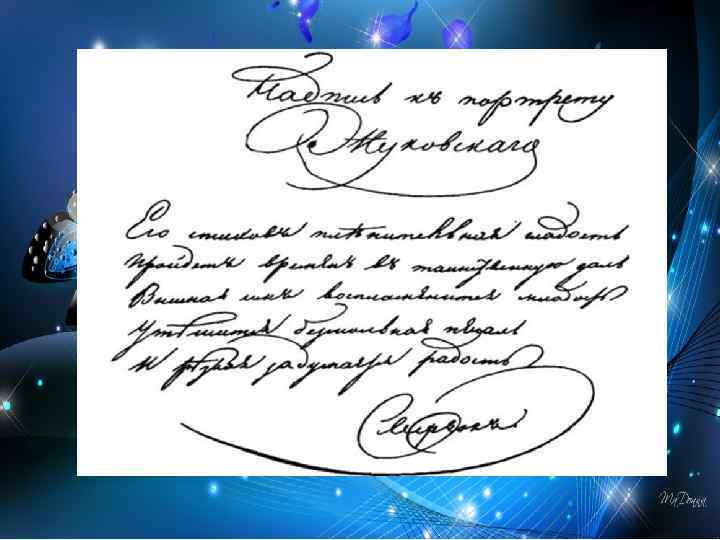 Надпись къ портрету
Жуковскаго
Его стиховъ плѣнительная сладость
Пройдетъ временъ въ таинственную даль
Внимая имъ воспламенится младость
Утѣшится безмолвная печаль
И рѣзвая задумается радость
MaDonna